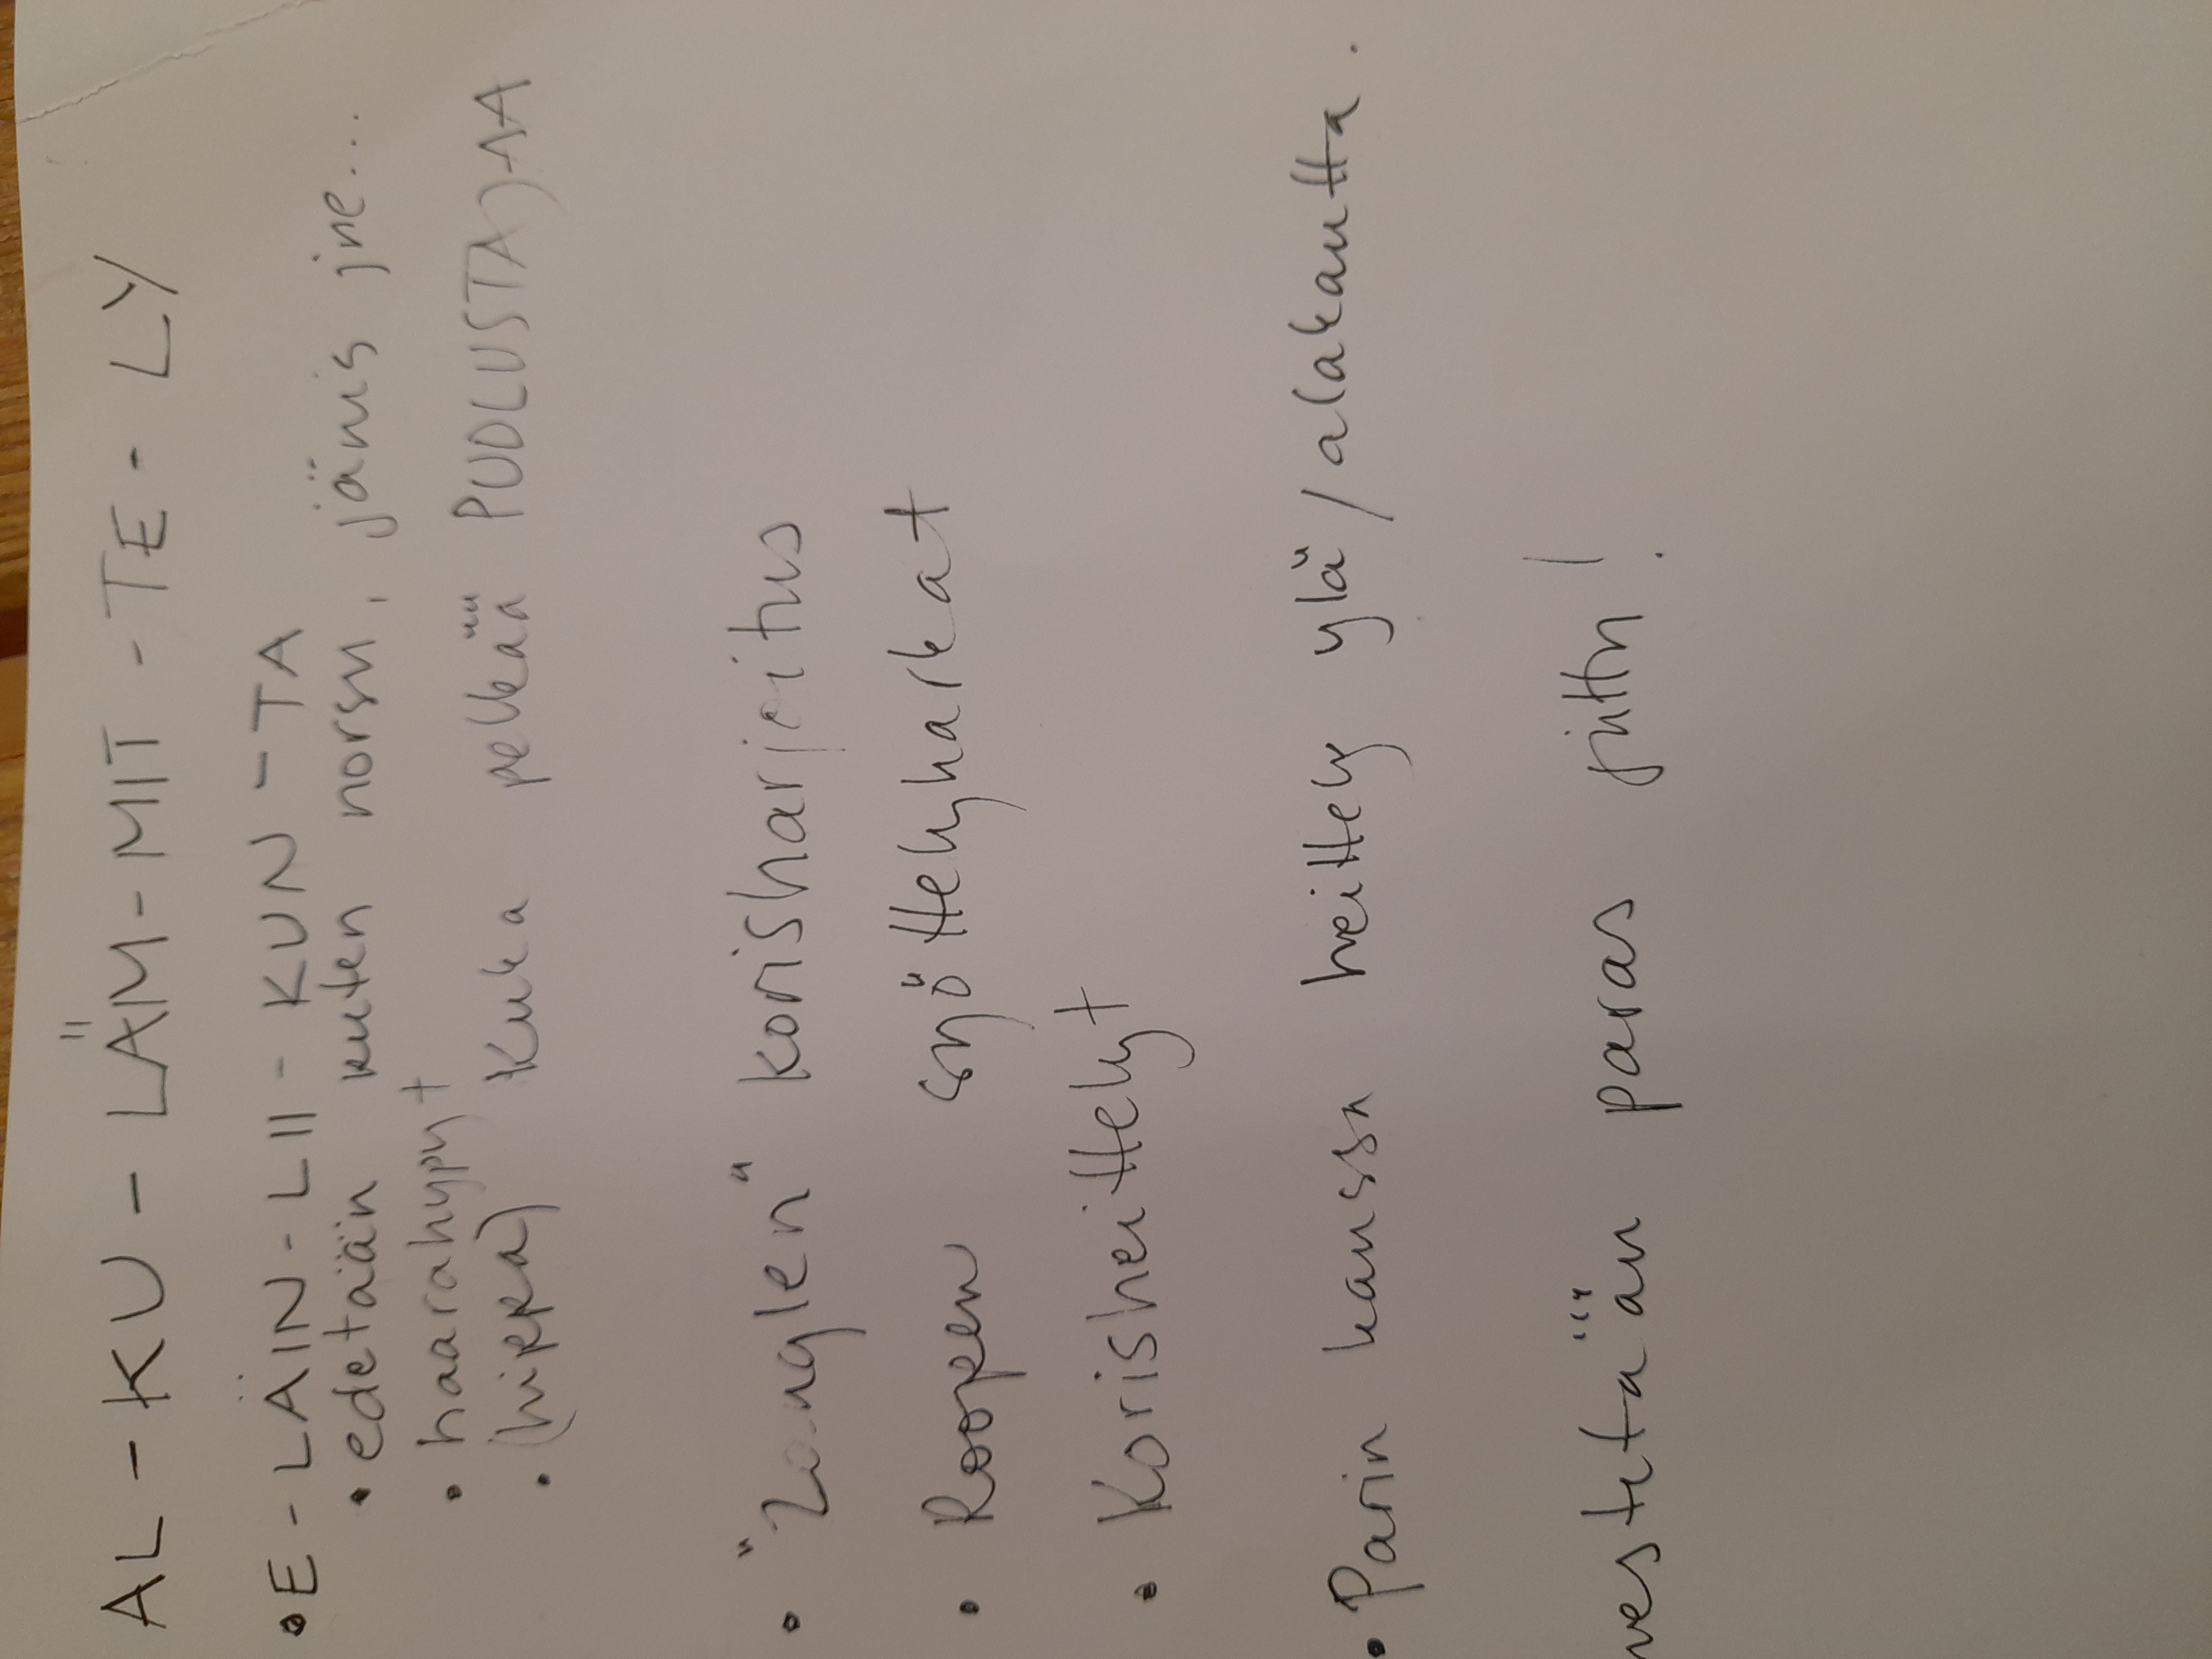 AL - KU - LÄM - MIT - TE - LY
• E - LÄIN - LII - KUN - TA
• edetään kuten norsu, jänis jne...
• haarahypyt
• (hippa) Kuka pelkää PUOLUSTAJAA
• "Zonglen" korisharjoitus
• Roopen syöttelyharkat
• Korisheittelyt
• Parin kanssa heittely ylä/alakautta.
paras juttu!